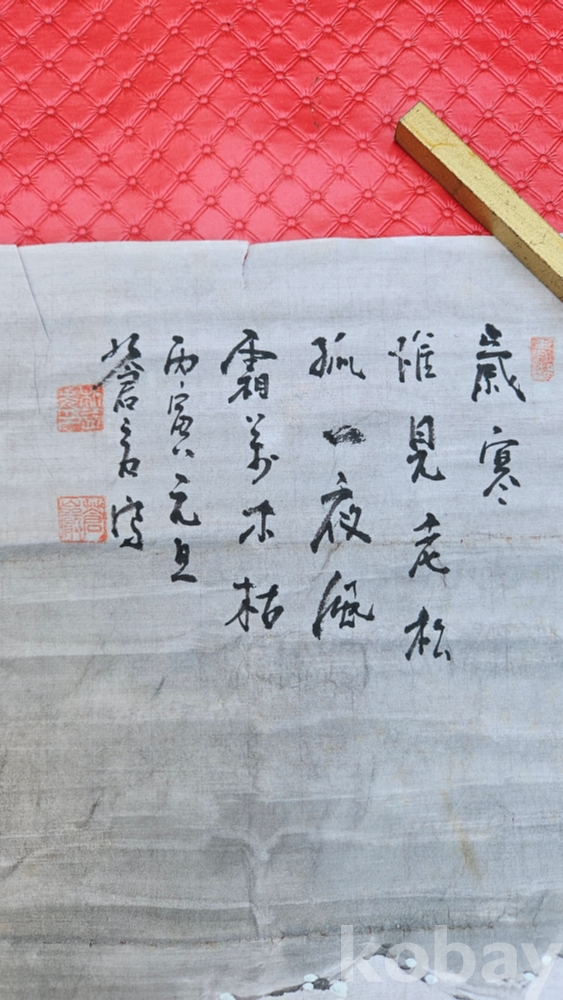 歲寒
惟見老松
孤一夜風
霜萬木枯
丙寅元旦
蒼嵒寫
kobay